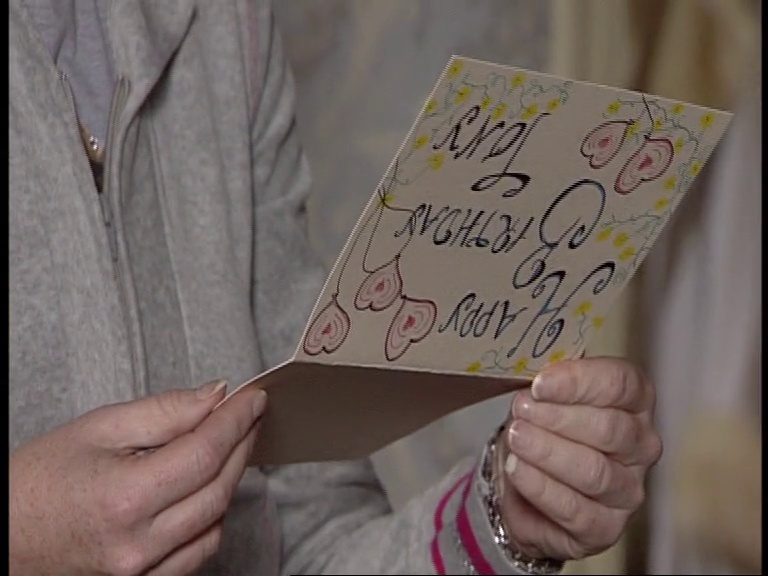 HAPPY
BIRTHDAY
TONY